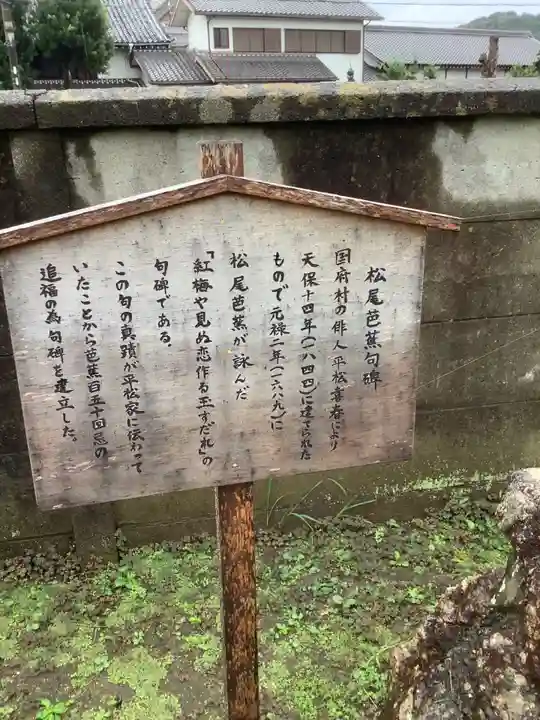 松尾芭蕉句碑
国府村の俳人平松喜春により
天保十四年(一八四四)に建された
もので元禄二年(一六八九)に
松尾芭蕉が詠んだ
「紅梅や見ぬ恋作る玉すだれ」の
句碑である。
この句の真蹟が平松家に伝わって
いたことから芭蕉百五十回忌の
追福の為句碑を建立した。